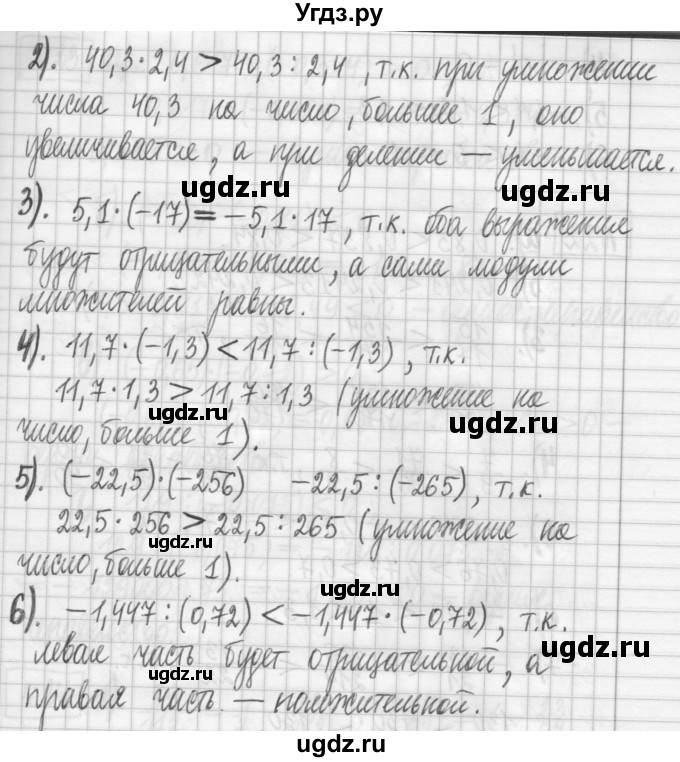 Угдз.ру
2). 40,3·2,4 > 40,3 : 2,4, т.к. при умножении
числа 40,3 на число, большее 1, оно
увеличивается, а при делении — уменьшается.
ugdz.ru ugdz.ru
3). 5,1·(−17) = −5,1·17, т.к. оба выражения
будут отрицательными, а сами модули
множителей равны.
4). 11,7·(−1,3) < 11,7 : (−1,3), т.к.
11,7·1,3 > 11,7 : 1,3 (умножение на
ugdz.ru ugdz.ru
число, больше 1).
5). (−22,5)·(−256) −22,5 : (−265), т.к.
22,5·256 > 22,5 : 265 (умножение на
ugdz.ru
число, больше 1).
ugdz.ru
6). −1,447 : (0,72) < −1,447·(−0,72), т.к.
ugdz.ru
левая часть будет отрицательной, а
ugdz.ru
правая часть — положительной.
ugdz.ru